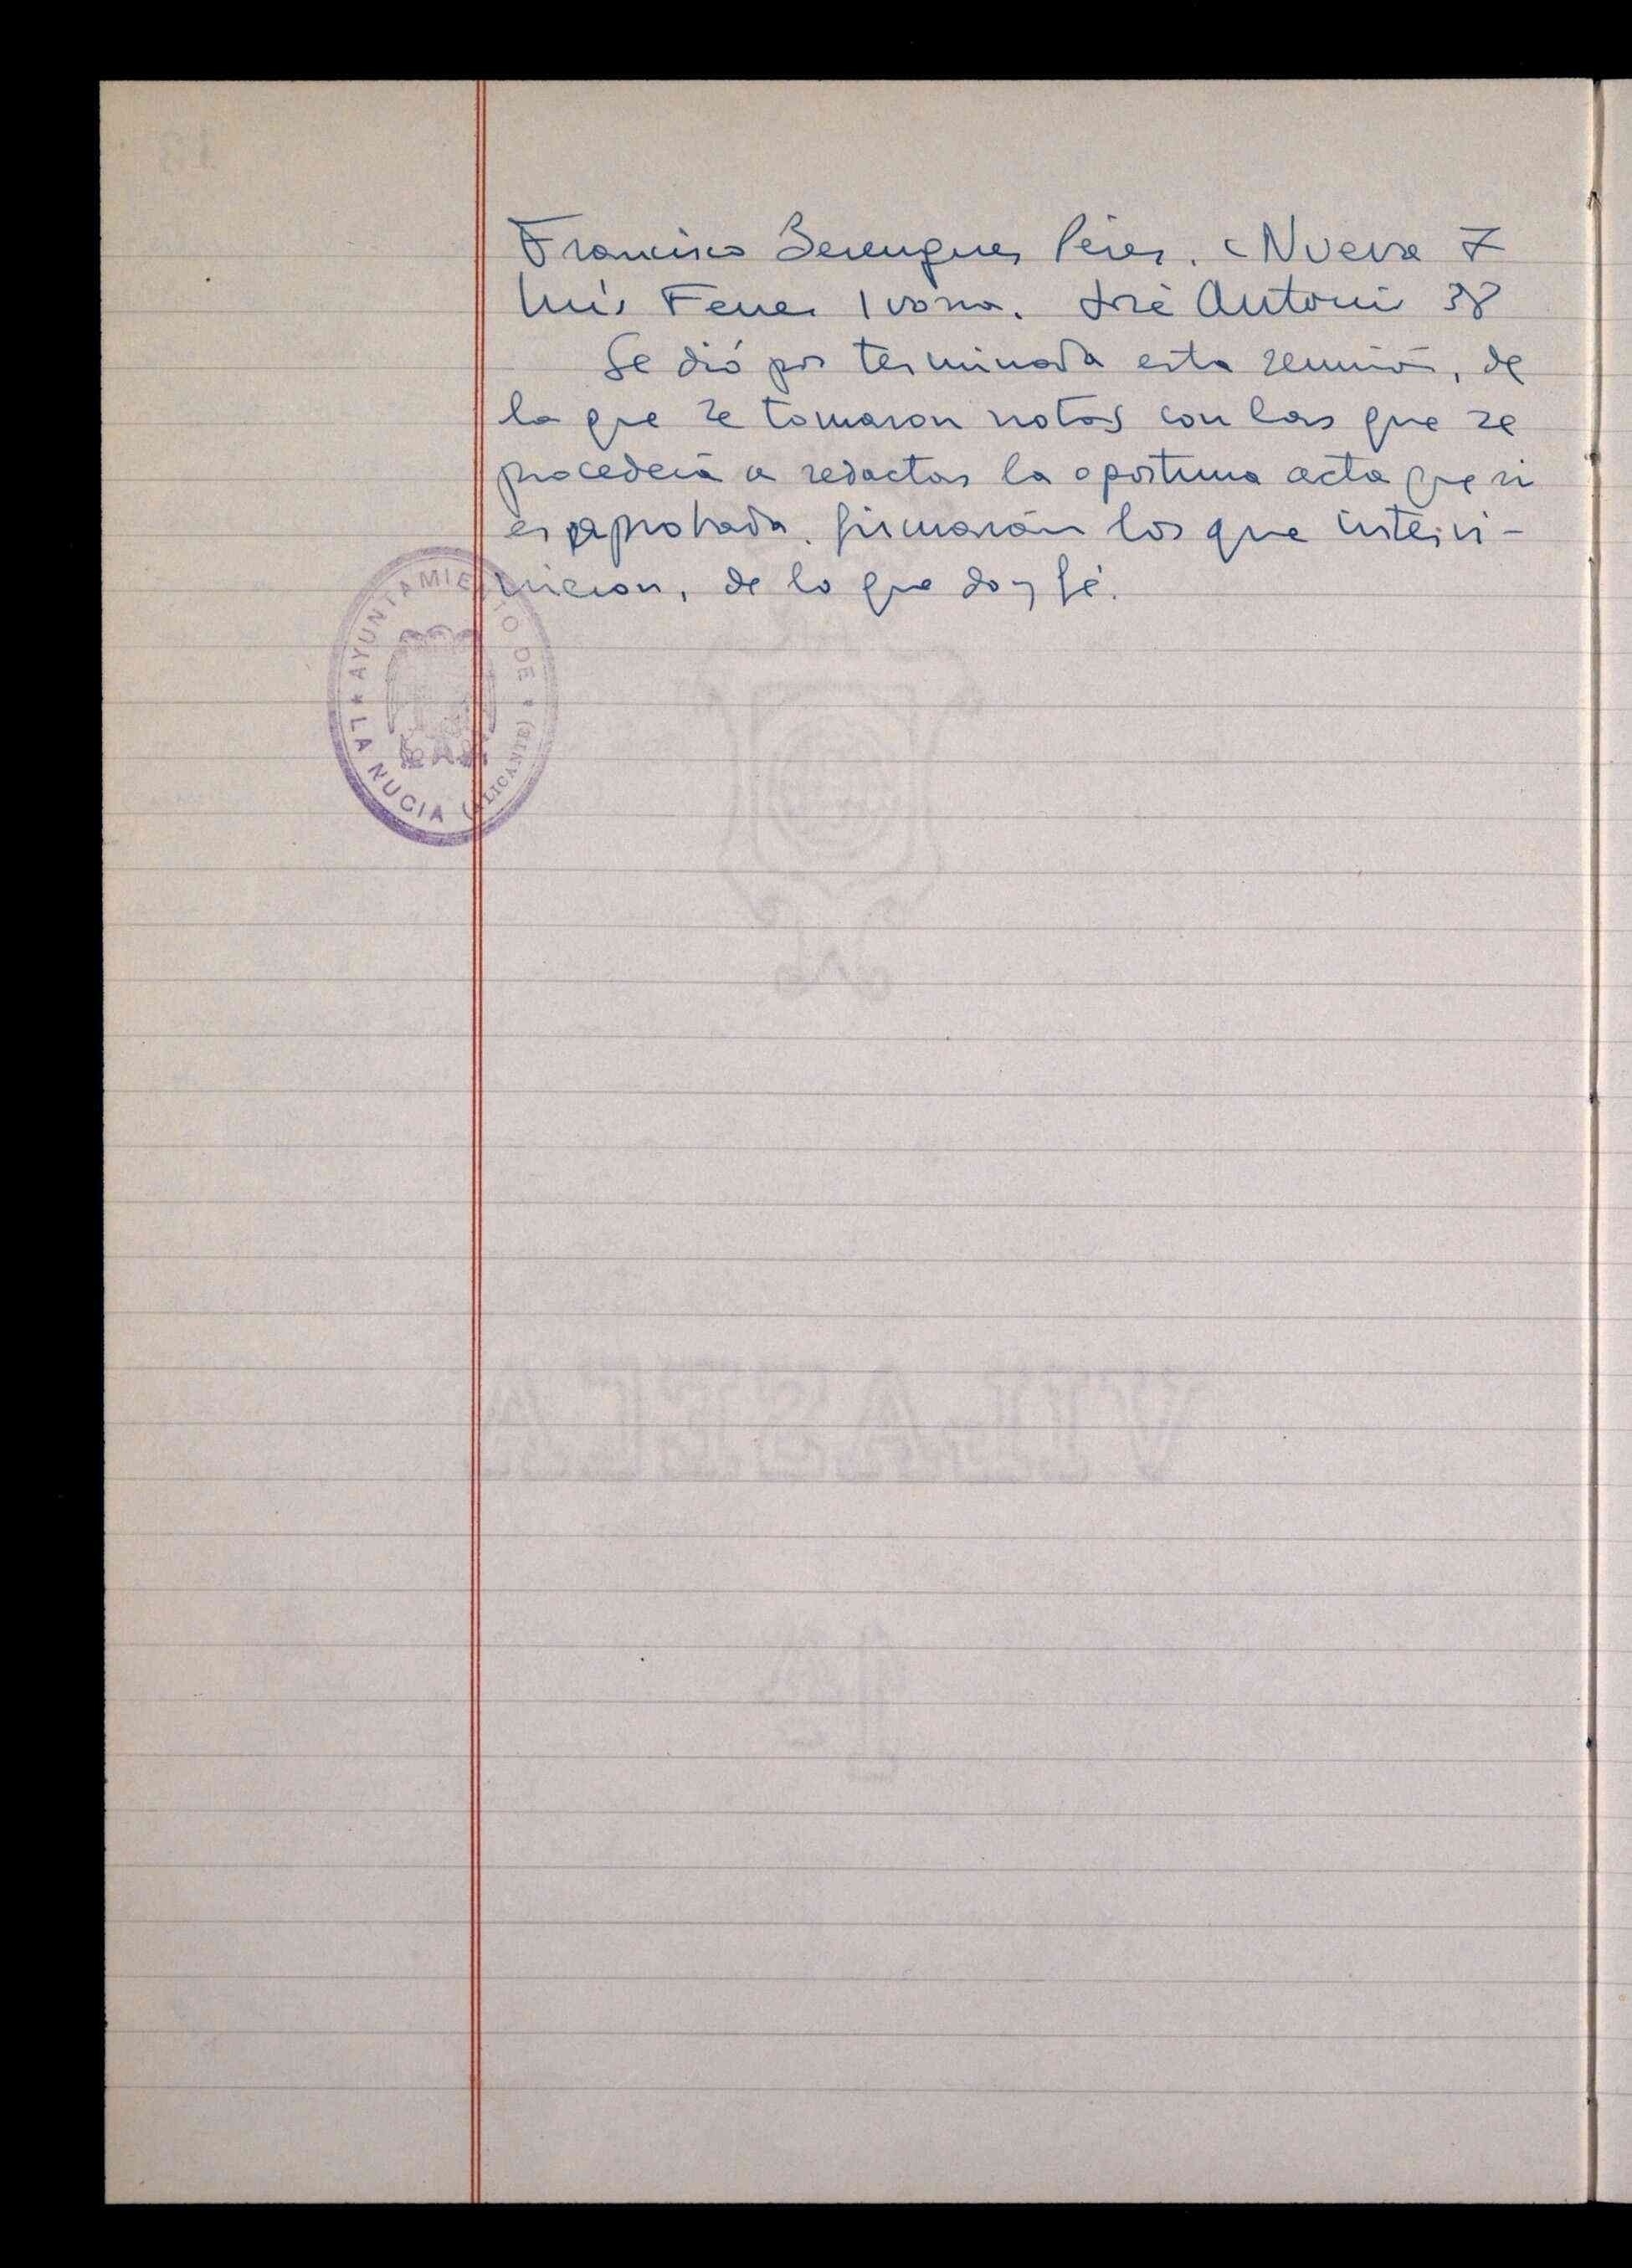 Francisco Berenguer Pérez. C Nueva 7
Luís Ferrer Ivorra. José Antonio 38
Se dió por terminada esta reunión, de
la que se tomaron notas con las que se
procederá a redactar la oportuna acta que si
es aprobada, firmarán los que intervi-
nieron, de lo que doy fé.
AYUNTAMIENTO DE * LA NUCIA (ALICANTE) *
VILASECA
1ª